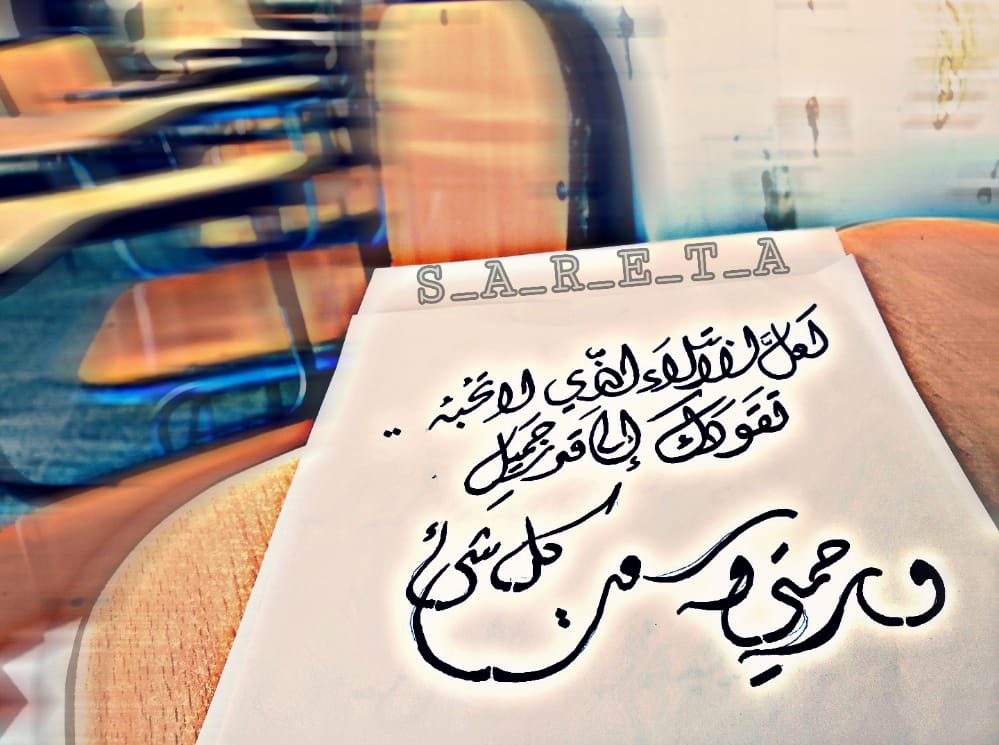 S_A_R_E_T_A
لَعلَّ الابتلَاء الذّي لا تحبه ..
تقودَك إلى قَدر جَميلِ
ورحمتي وسعت كل شئ